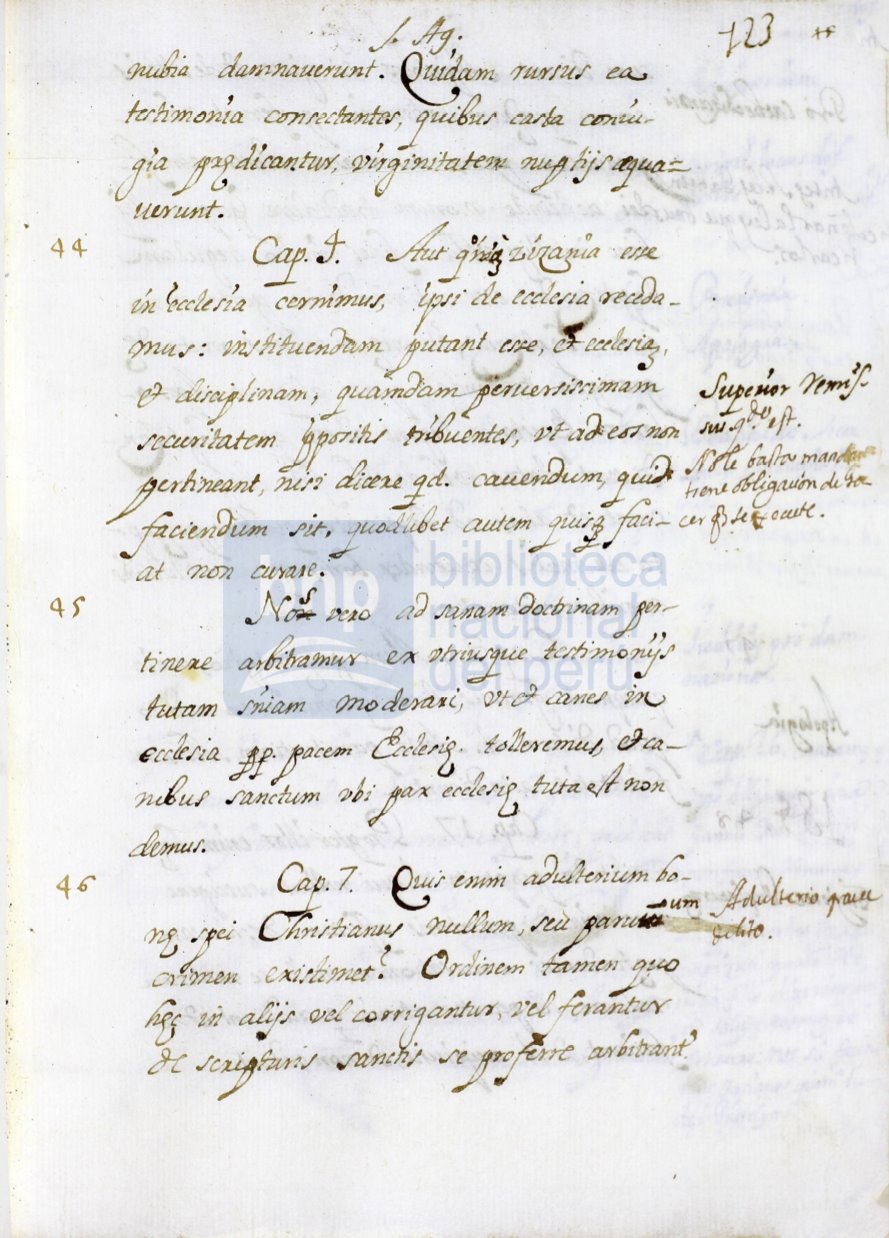 S. Ag.
123
nubia damnaverunt. Quidam rursus ea
testimonia consectantes, quibus casta coniu-
gia prędicantur, virginitatem nuptijs æqua=
verunt.
44
Cap. 5. Aut zizania esse
in ecclesia cernimus, ipsi de ecclesia receda-
mus: instituendam putant esse, et ecclesię,
et disciplinam, quamdam perversissimam
securitatem ppositis tribuentes, vt ad eos non
pertineant, nisi dicere qd. cavendum, quid
faciendum sit, quodlibet autem quisq faci-
at non curare.
Superior
sus est.
No le basta mandar
tiene obligación de
cer q se execute.
45
Nos vero ad sanam doctrinam per-
tinere arbitramur ex vtriusque testimonijs
tutam sniam moderari, vt et canes in
ecclesia pp. pacem Ecclesię. tolleremus, et ca-
nibus sanctum vbi pax ecclesię tuta est non
demus.
46
Cap. 7. Quis enim adulterium bo-
nę spei Christianus nullum, seu parvum
crimen existimet? Ordinem tamen quo
hęc in alijs vel corrigantur, vel ferantur
de scripturis sanctis se proferre arbitrant
Adulterio grave
delito.
bnp biblioteca
nacional
del perú